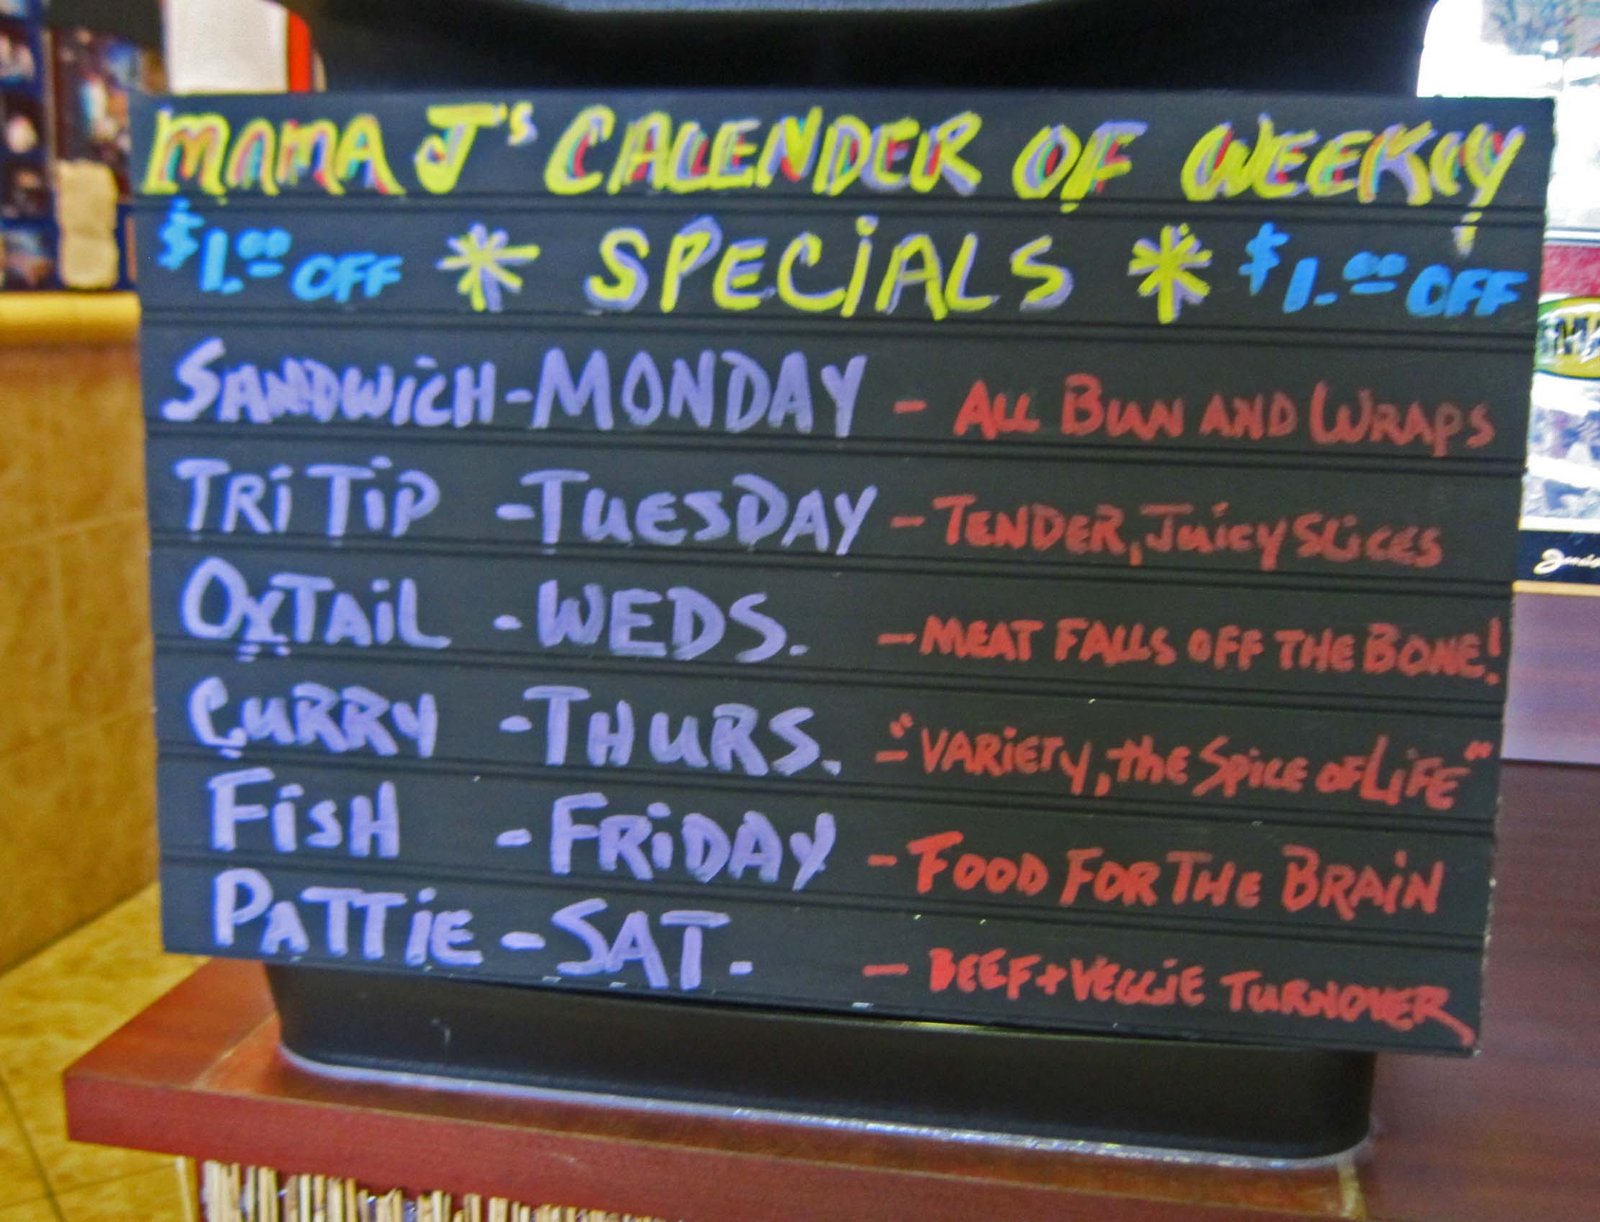 MAMA J's CALENDER OF WEEKLY
$1.00 OFF * SPECIALS * $1.00 OFF
SANDWiCH - MONDAY - ALL BUN AND WRAPS
TRi TiP - TUESDAY - TENDER, JuicY SLiCES
OXTAiL - WEDS. - MEAT FALLS OFF THE BONE!
CURRY - THURS. - "VARiETY, the SPiCE OF LiFE"
FiSH - FRiDAY - FOOD FOR THE BRAiN
PATTiE - SAT. - BEEF + VEGGiE TURNOVER